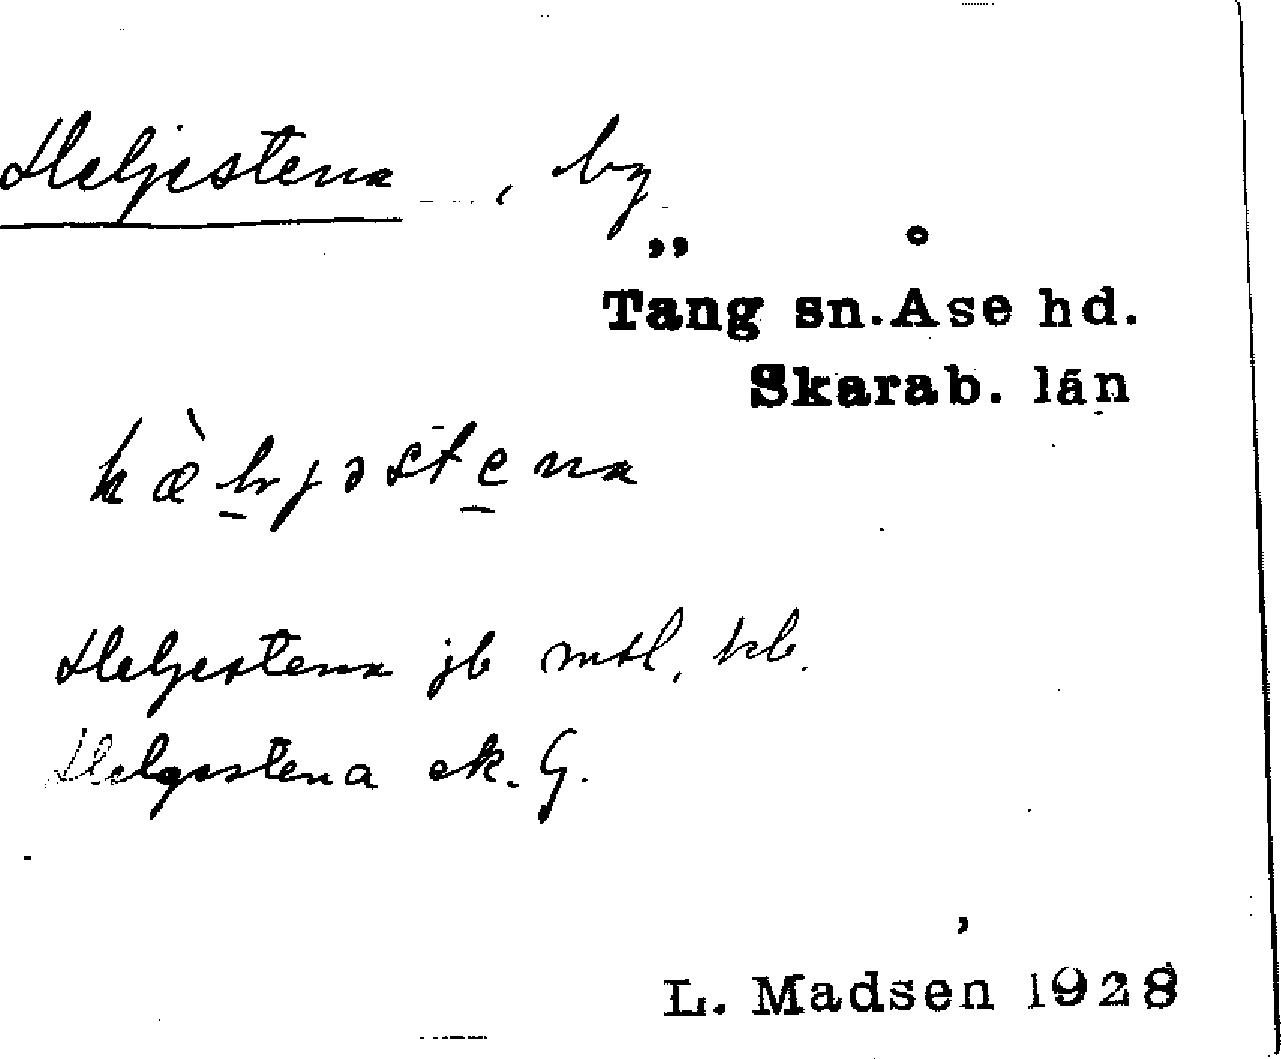 Heljestena, by
Täng sn. Åse hd.
Skarab. län
hæ̀ljəstena
Heljestena jb mtl, kb.
Helgestena ek. G.
L. Madsén 1928